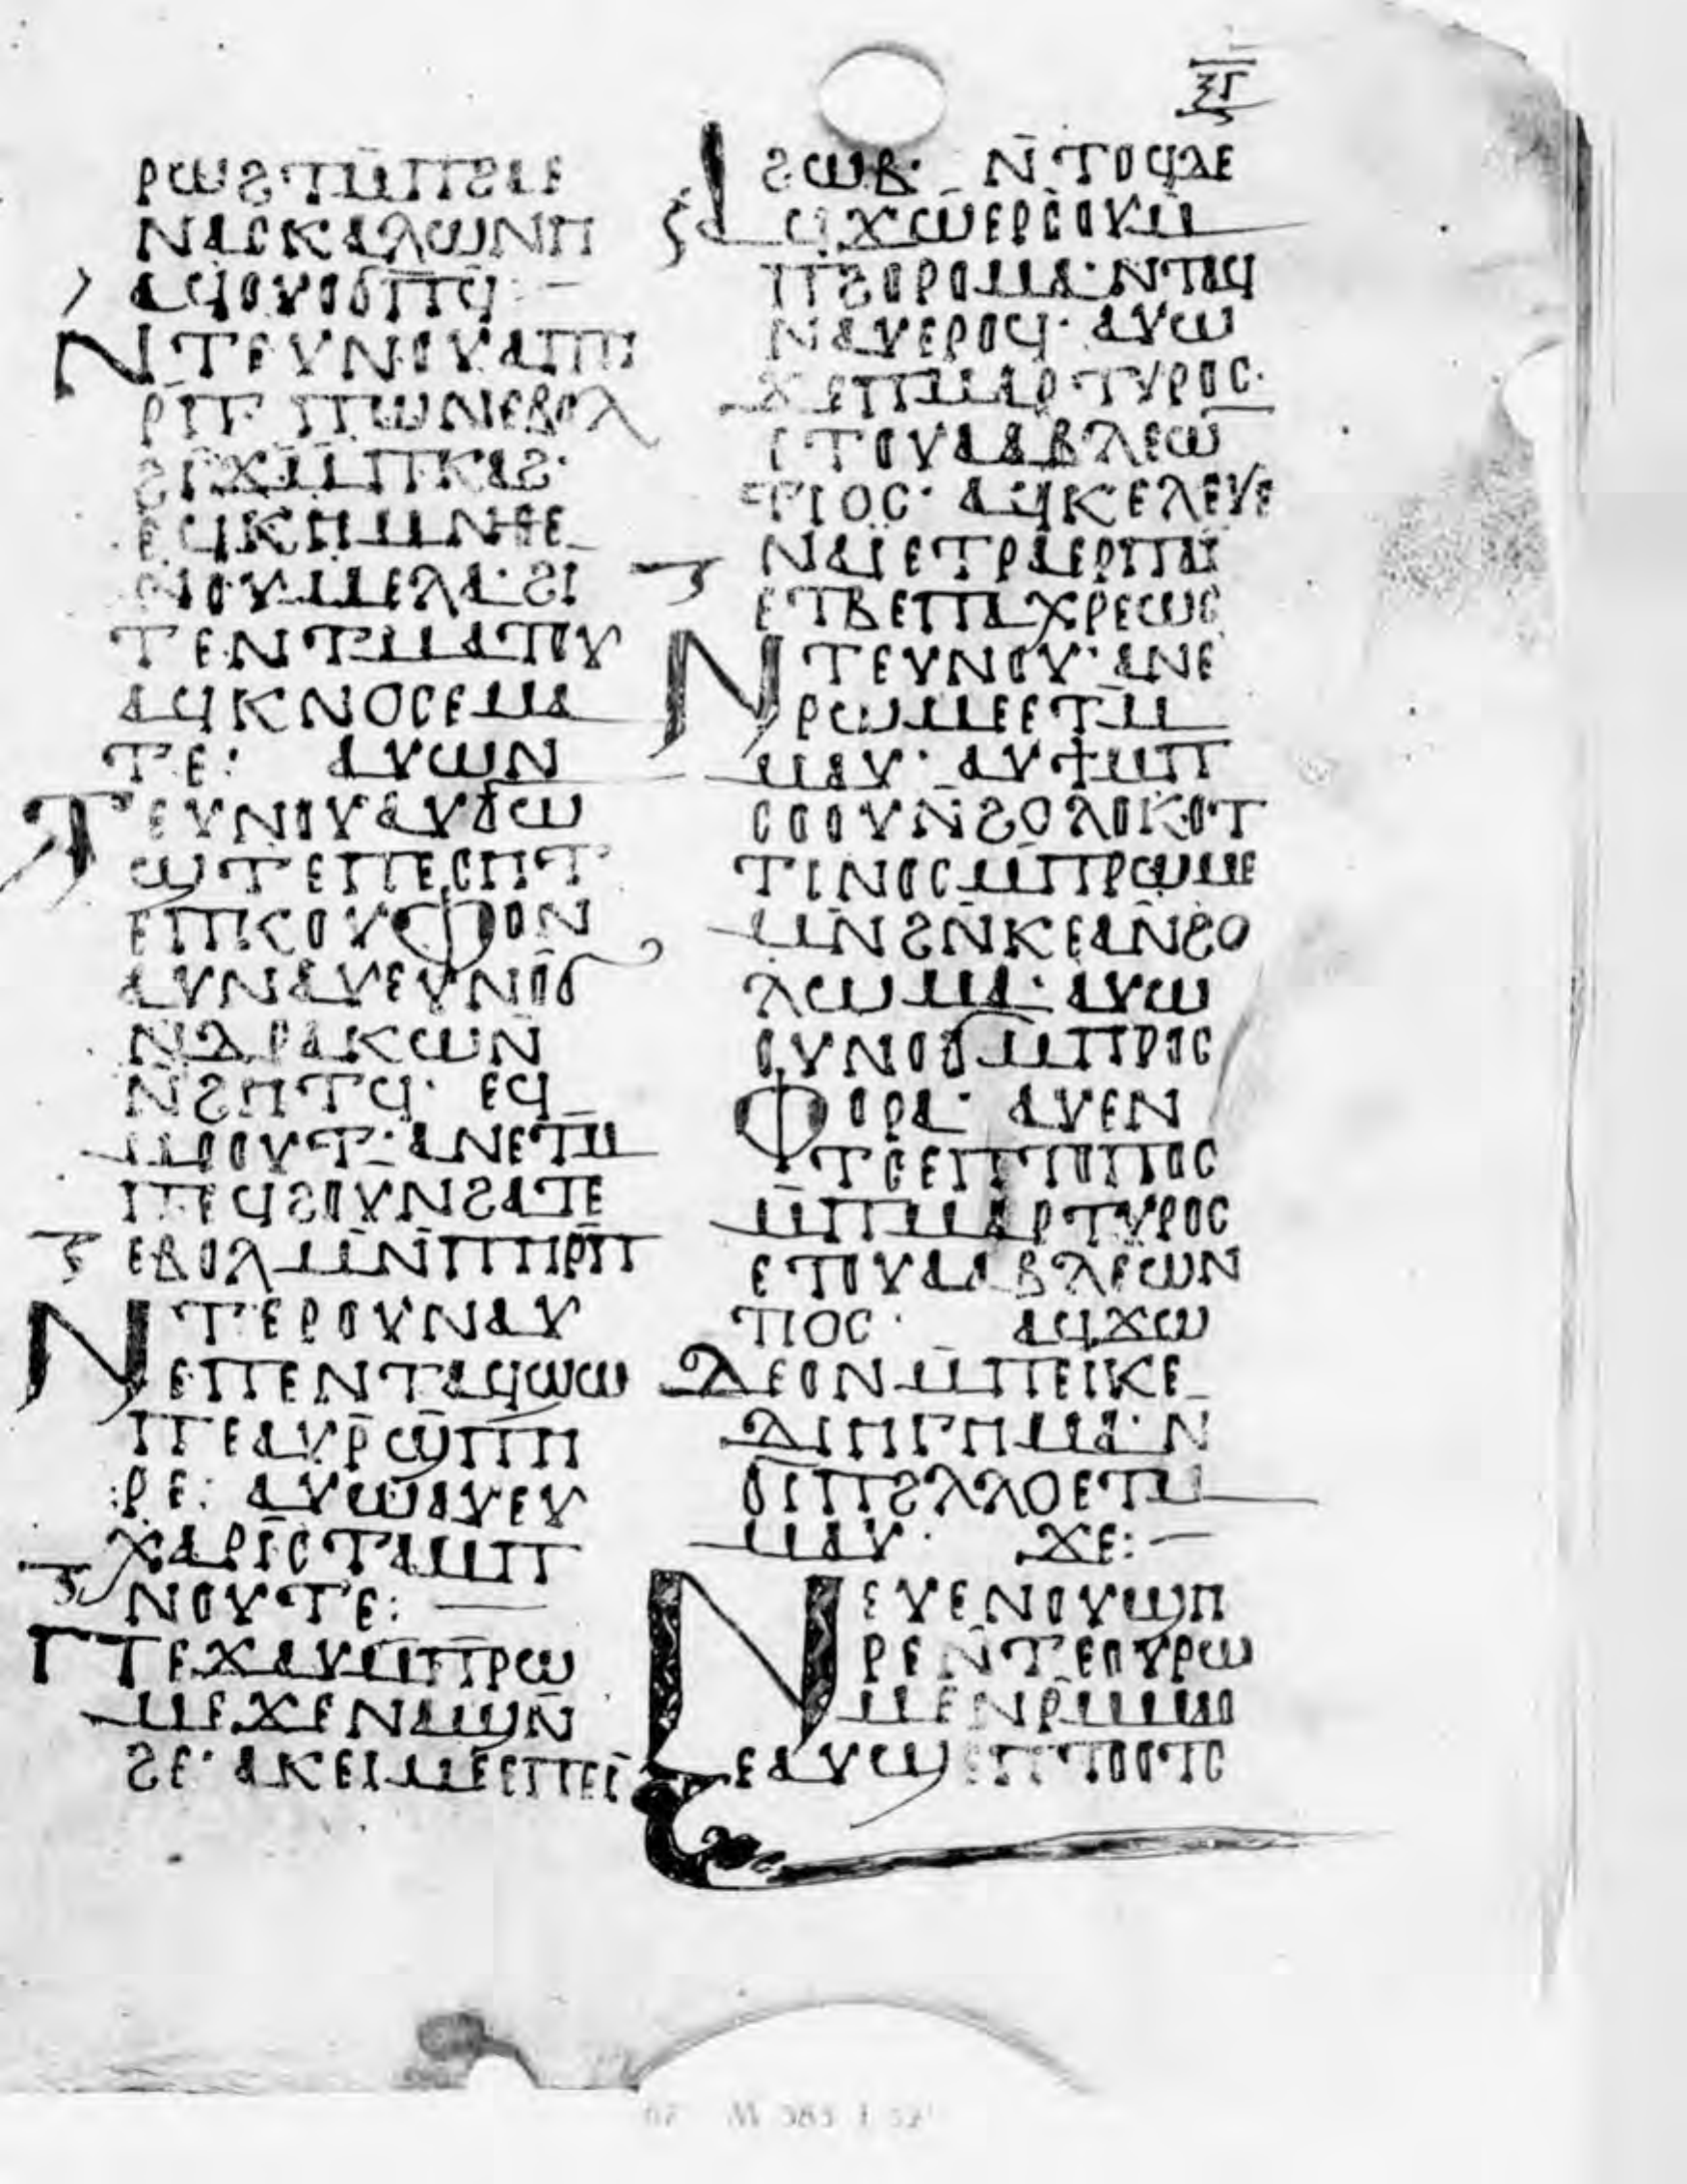 ⲝⲅ
ⲣⲱϩⲧⲙ̄ⲡϩⲓⲉ
ⲛⲁⲥⲕⲁⲗⲱⲛⲏ
ⲁϥⲟⲩⲟϭⲡϥ:—
ⲛⲧⲉⲩⲛⲟⲩⲁⲡⲏ
ⲣⲡ̄ ⲡⲱⲛⲉⲃⲟⲗ
ϩⲓϫⲙ̄ⲡⲕⲁϩ·
ⲉϥⲕⲏⲙⲛ̄ⲑⲉ
ⲛⲟⲩⲙⲉⲗⲁ·ϩⲓ
ⲧⲉⲛⲧⲙⲁⲧⲟⲩ
ⲁϥⲕⲛⲟⲥⲉⲙⲁ
ⲧⲉ: ⲁⲩⲱⲛ
ⲧⲉⲩⲛⲟⲩⲁⲩϭⲱ
ϣⲧⲉⲡⲉⲥⲏⲧ
ⲉⲡⲕⲟⲩⲫⲟⲛ
ⲁⲩⲛⲁⲩⲉⲩⲛⲟϭ
ⲛ̄ⲇⲣⲁⲕⲱⲛ
ⲛ̄ϩⲏⲧϥ· ⲉϥ
ⲙⲟⲟⲩⲧ·ⲁⲛⲉⲧⲙ̄
ⲡⲉϥϩⲟⲩⲛϩⲁⲧⲉ
ⲉⲃⲟⲗⲙⲛ̄ⲡⲏⲣⲡ̄
ⲛⲧⲉⲣⲟⲩⲛⲁⲩ
ⲉⲡⲉⲛⲧⲁϥϣⲱ
ⲡⲉⲁⲩⲣ̄ϣⲡⲏ
ⲣⲉ: ⲁⲩⲱⲁⲩⲉⲩ
ⲭⲁⲣⲓⲥⲧⲁⲙⲡ
ⲛⲟⲩⲧⲉ: —
ⲡⲉϫⲁⲩⲙ̄ⲡⲣⲱ
ⲙⲉϫⲉⲛⲁϣⲛ̄
ϩⲉ·ⲁⲕⲉⲓⲙⲉⲉⲡⲉⲓ
ϩⲱⲃ· ⲛ̄ⲧⲟϥⲇⲉ
ⲁϥϫⲱⲉⲣⲟⲟⲩⲙ̄
ⲡϩⲟⲣⲟⲙⲁ·ⲛⲧⲁϥ
ⲛⲁⲩⲉⲣⲟϥ· ⲁⲩⲱ
ϫⲉⲡⲙⲁⲣⲧⲩⲣⲟⲥ·
ⲉⲧⲟⲩⲁⲁⲃⲗⲉⲱ
ⲛⲧⲓⲟⲥ· ⲁϥⲕⲉⲗⲉⲩⲉ
ⲛⲁⲓ̈ⲉⲧⲣⲁⲉⲣⲡⲁⲓ̈
ⲉⲧⲃⲉⲡⲁⲭⲣⲉⲱⲥ
ⲛⲧⲉⲩⲛⲟⲩ·ⲁⲛⲉ
ⲣⲱⲙⲉⲉⲧⲙ̄
ⲙⲁⲩ· ⲁⲩϯⲙⲡ
ⲥⲟⲟⲩⲛ̄ϩⲟⲗⲟⲕⲟⲧ
ⲧⲓⲛⲟⲥⲙ̄ⲡⲣⲱⲙⲉ
ⲙⲛ̄ϩⲛ̄ⲕⲉⲁⲛ̄ϩⲟ
ⲗⲱⲙⲁ· ⲁⲩⲱ
ⲟⲩⲛⲟϭⲙ̄ⲡⲣⲟⲥ
ⲫⲟⲣⲁ· ⲁⲩⲉⲛ
ⲧⲥⲉⲡⲧⲟⲡⲟⲥ
ⲙ̄ⲡⲙⲁⲣⲧⲩⲣⲟⲥ
ⲉⲧⲟⲩⲁⲁⲃⲗⲉⲱⲛ
ⲧⲓⲟⲥ· ⲁϥϫⲱ
ⲇⲉⲟⲛⲙ̄ⲡⲉⲓⲕⲉ
ⲇⲓⲏⲅⲏⲙⲁ·ⲛ
ϭⲓⲡϩⲗⲗⲟⲉⲧⲙ̄
ⲙⲁⲩ· ϫⲉ:—
ⲛⲉⲩⲉⲛⲟⲩϣⲏ
ⲣⲉⲛ̄ⲧⲉⲟⲩⲣⲱ
ⲙⲉⲛⲣ̄ⲙⲙⲁⲟ
ⲉⲁⲩϣⲉⲡⲧⲟⲟⲧⲥ